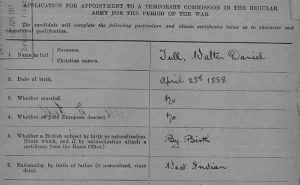 APPLICATION FOR APPOINTMENT TO A TEMPORARY COMMISSION IN THE REGULAR
ARMY FOR THE PERIOD OF THE WAR.
The candidate will complete the following particulars and obtain certificates below as to character and
educational qualification.
1. Name in full { Surname. Tull, Walter Daniel
Christian names.
2. Date of birth. April 28th 1888
3. Whether married. No
4. Whether of pure European descent. No
5. Whether a British subject by birth or naturalisation. By Birth
(State which, and if by naturalisation attach a
certificate from the Home Office.)
6. Nationality by birth of father (if naturalized, state West Indian
date).